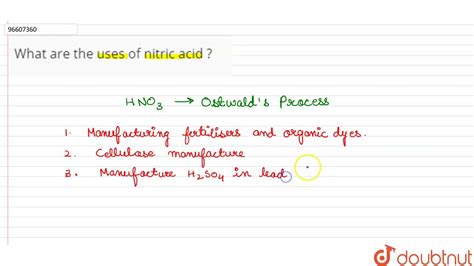 96607360
What are the uses of nitric acid ?
HNO3 → Ostwald's Process
1. Manufacturing fertilisers and organic dyes.
2. Cellulose manufacture
3. Manufacture H2SO4 in lead
doubtnut